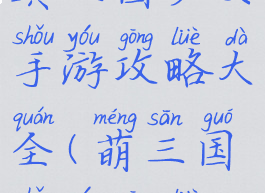 shǒu yóu gōng lüè dà
手游攻略大
quán méng sān guó
全(萌三国